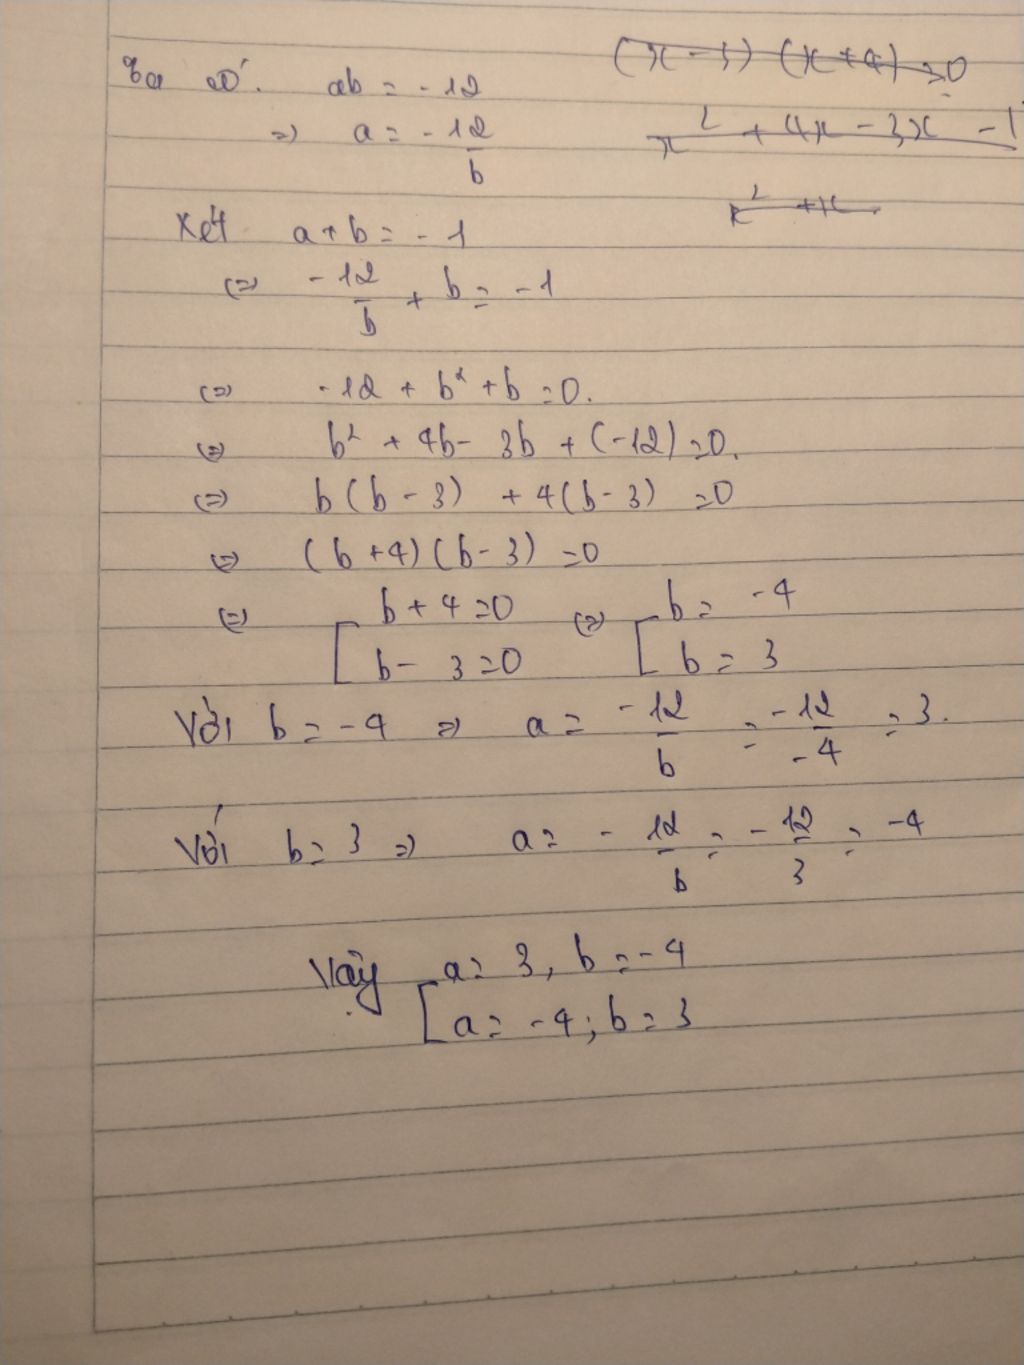 Ta có. ab = -12
=> a = -12/b
(x-3)(x+4)=0
x² + 4x - 3x - 1
x² + x
Xét a+b = -1
<=> -12/b + b = -1
<=> -12 + b² + b = 0.
<=> b² + 4b - 3b + (-12) = 0.
<=> b(b-3) + 4(b-3) = 0
<=> (b+4)(b-3) = 0
<=> [ b+4=0 <=> [ b = -4
b-3=0 b = 3
Với b = -4 => a = -12/b = -12/-4 = 3.
Với b = 3 => a = -12/b = -12/3 = -4
Vậy [ a = 3, b = -4
a = -4; b = 3